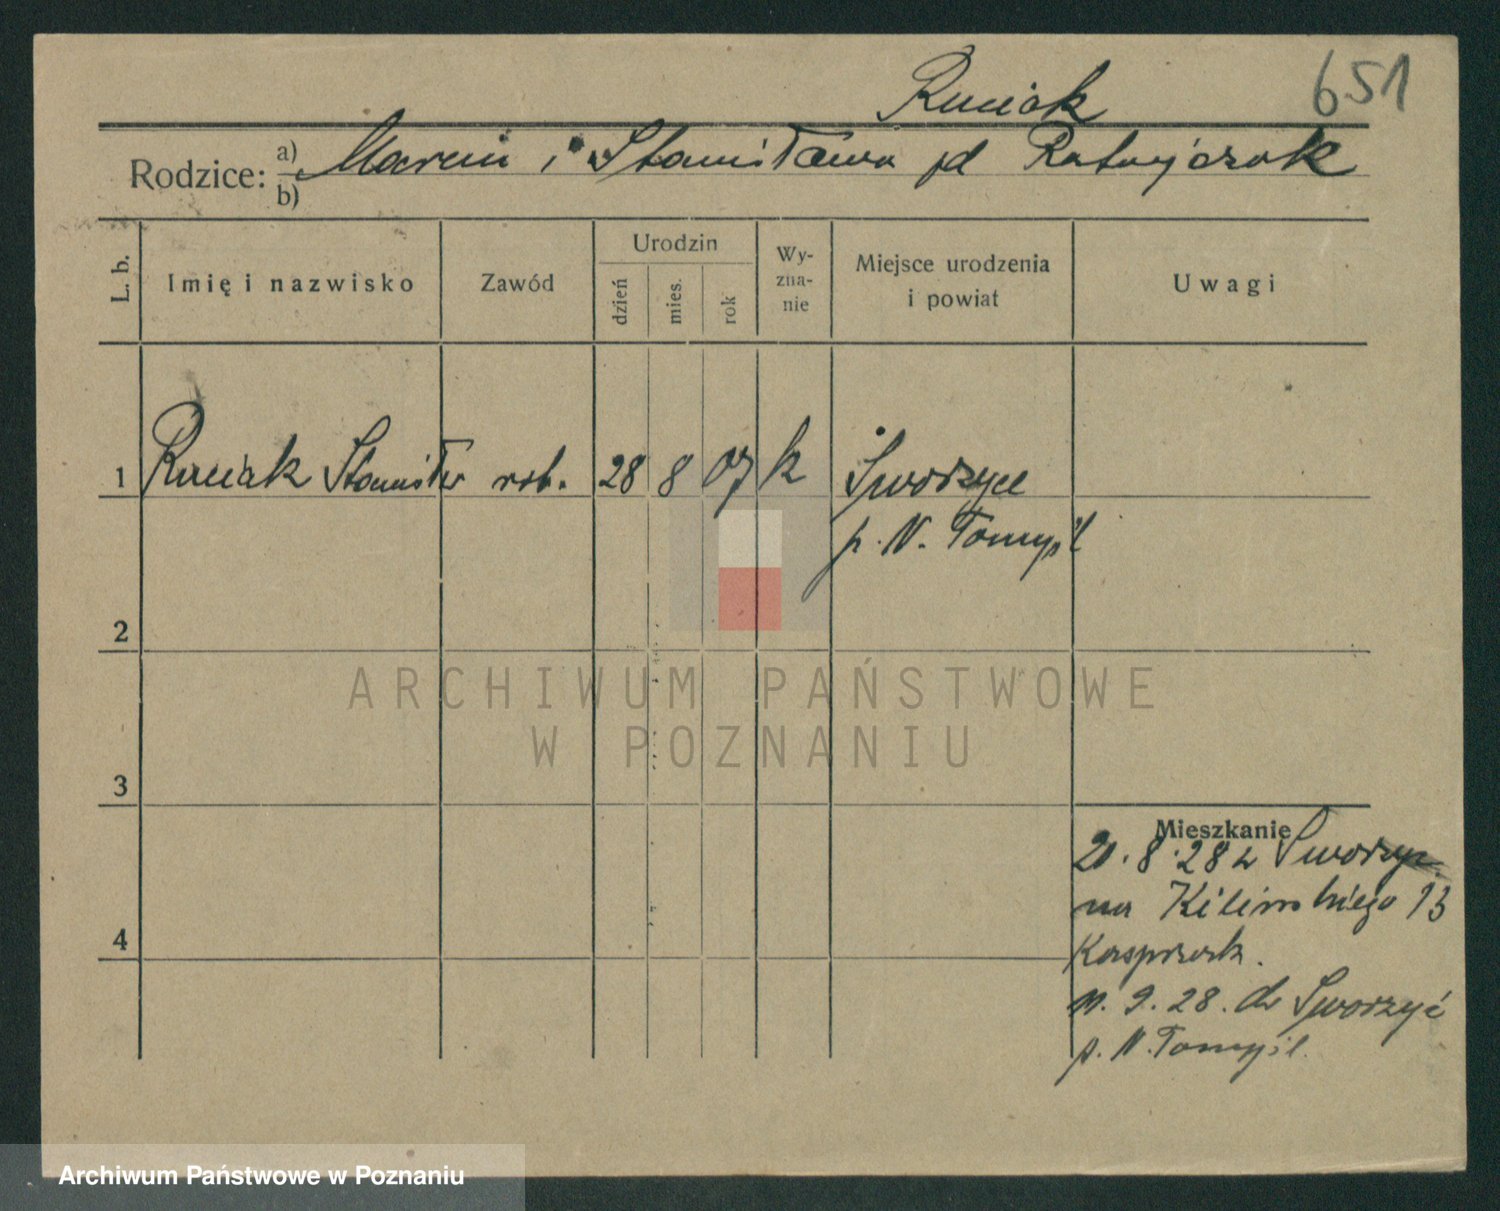 Ruciak
651
Rodzice: a) Marcin i Stanisława zd Ratajczak
b)
L. b.
Imię i nazwisko
Zawód
Urodzin
dzień
mies.
rok
Wy-
zna-
nie
Miejsce urodzenia
i powiat
Uwagi
1 Ruciak Stanisław rob. 28 8 07 k Sworzyce
p. N. Tomyśl
2
3
4
Mieszkanie
21. 8. 28 z Sworzyc
na Kilińskiego 13
Kasprzak.
11. 9. 28. do Sworzyć
p. N. Tomyśl.
ARCHIWUM PAŃSTWOWE
W POZNANIU
Archiwum Państwowe w Poznaniu